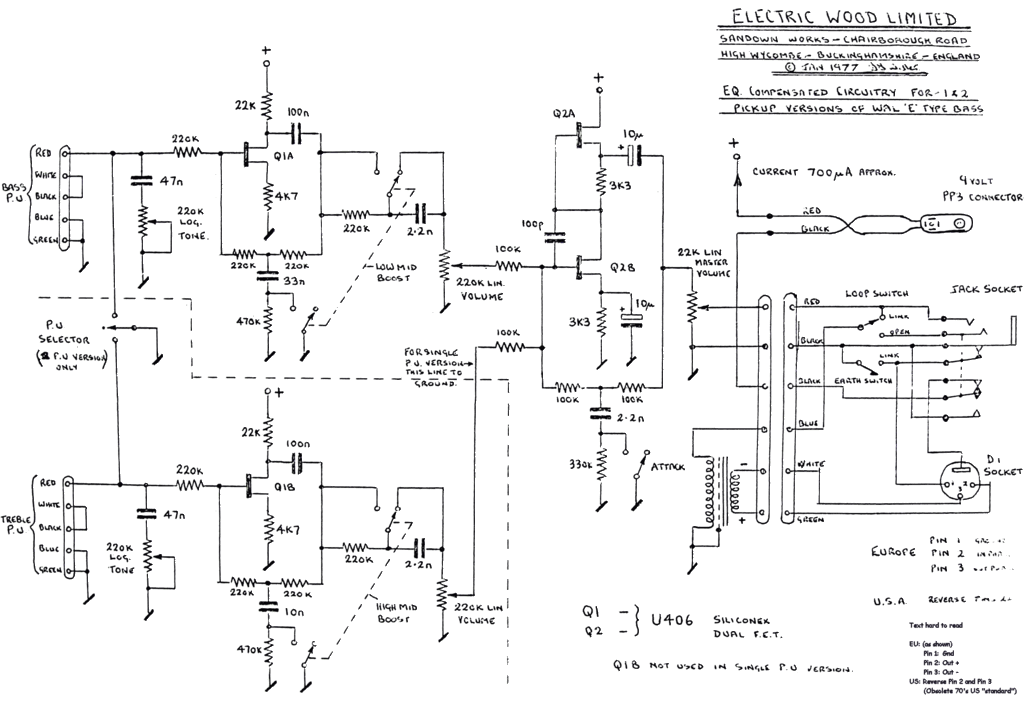 ELECTRIC WOOD LIMITED
SANDOWN WORKS - CHAIRBOROUGH ROAD
HIGH WYCOMBE - BUCKINGHAMSHIRE - ENGLAND
© JAN 1977
EQ. COMPENSATED CIRCUITRY FOR 1&2
PICKUP VERSIONS OF WAL 'E' TYPE BASS
+
22K
100n
Q1A
220K
4K7
BASS
P.U
RED
WHITE
BLACK
BLUE
GREEN
47n
220K
LOG.
TONE.
220K
220K
33n
470K
220K
2.2n
LOW MID
BOOST
220K LIN.
VOLUME
P.U
SELECTOR
(2 P.U VERSION
ONLY)
100K
100K
FOR SINGLE
P.U. VERSION
THIS LINE TO
GROUND.
+
Q2A
10μ
+
3K3
100p
Q2B
3K3
+
10μ
22K LIN
MASTER
VOLUME
100K
100K
2.2n
330K
ATTACK
+
CURRENT 700μA APPROX.
9 VOLT
PP3 CONNECTOR
RED
BLACK
RED
LOOP SWITCH
JACK SOCKET
LINK
OPEN
BLACK
LINK
BLACK
EARTH SWITCH
BLUE
WHITE
GREEN
-
+
DI
SOCKET
1
2
3
+
22K
100n
Q1B
220K
4K7
TREBLE
P.U
RED
WHITE
BLACK
BLUE
GREEN
47n
220K
LOG.
TONE
220K
220K
10n
470K
220K
2.2n
HIGH MID
BOOST
220K LIN
VOLUME
EUROPE
PIN 1
PIN 2
PIN 3
U.S.A. REVERSE
Q1 -
Q2 -
} U406 SILICONEX
DUAL F.E.T.
Q1B NOT USED IN SINGLE P.U VERSION.
Text hard to read
EU: (as shown)
Pin 1: Gnd
Pin 2: Out +
Pin 3: Out -
US: Reverse Pin 2 and Pin 3
(Obsolete 70's US "standard")